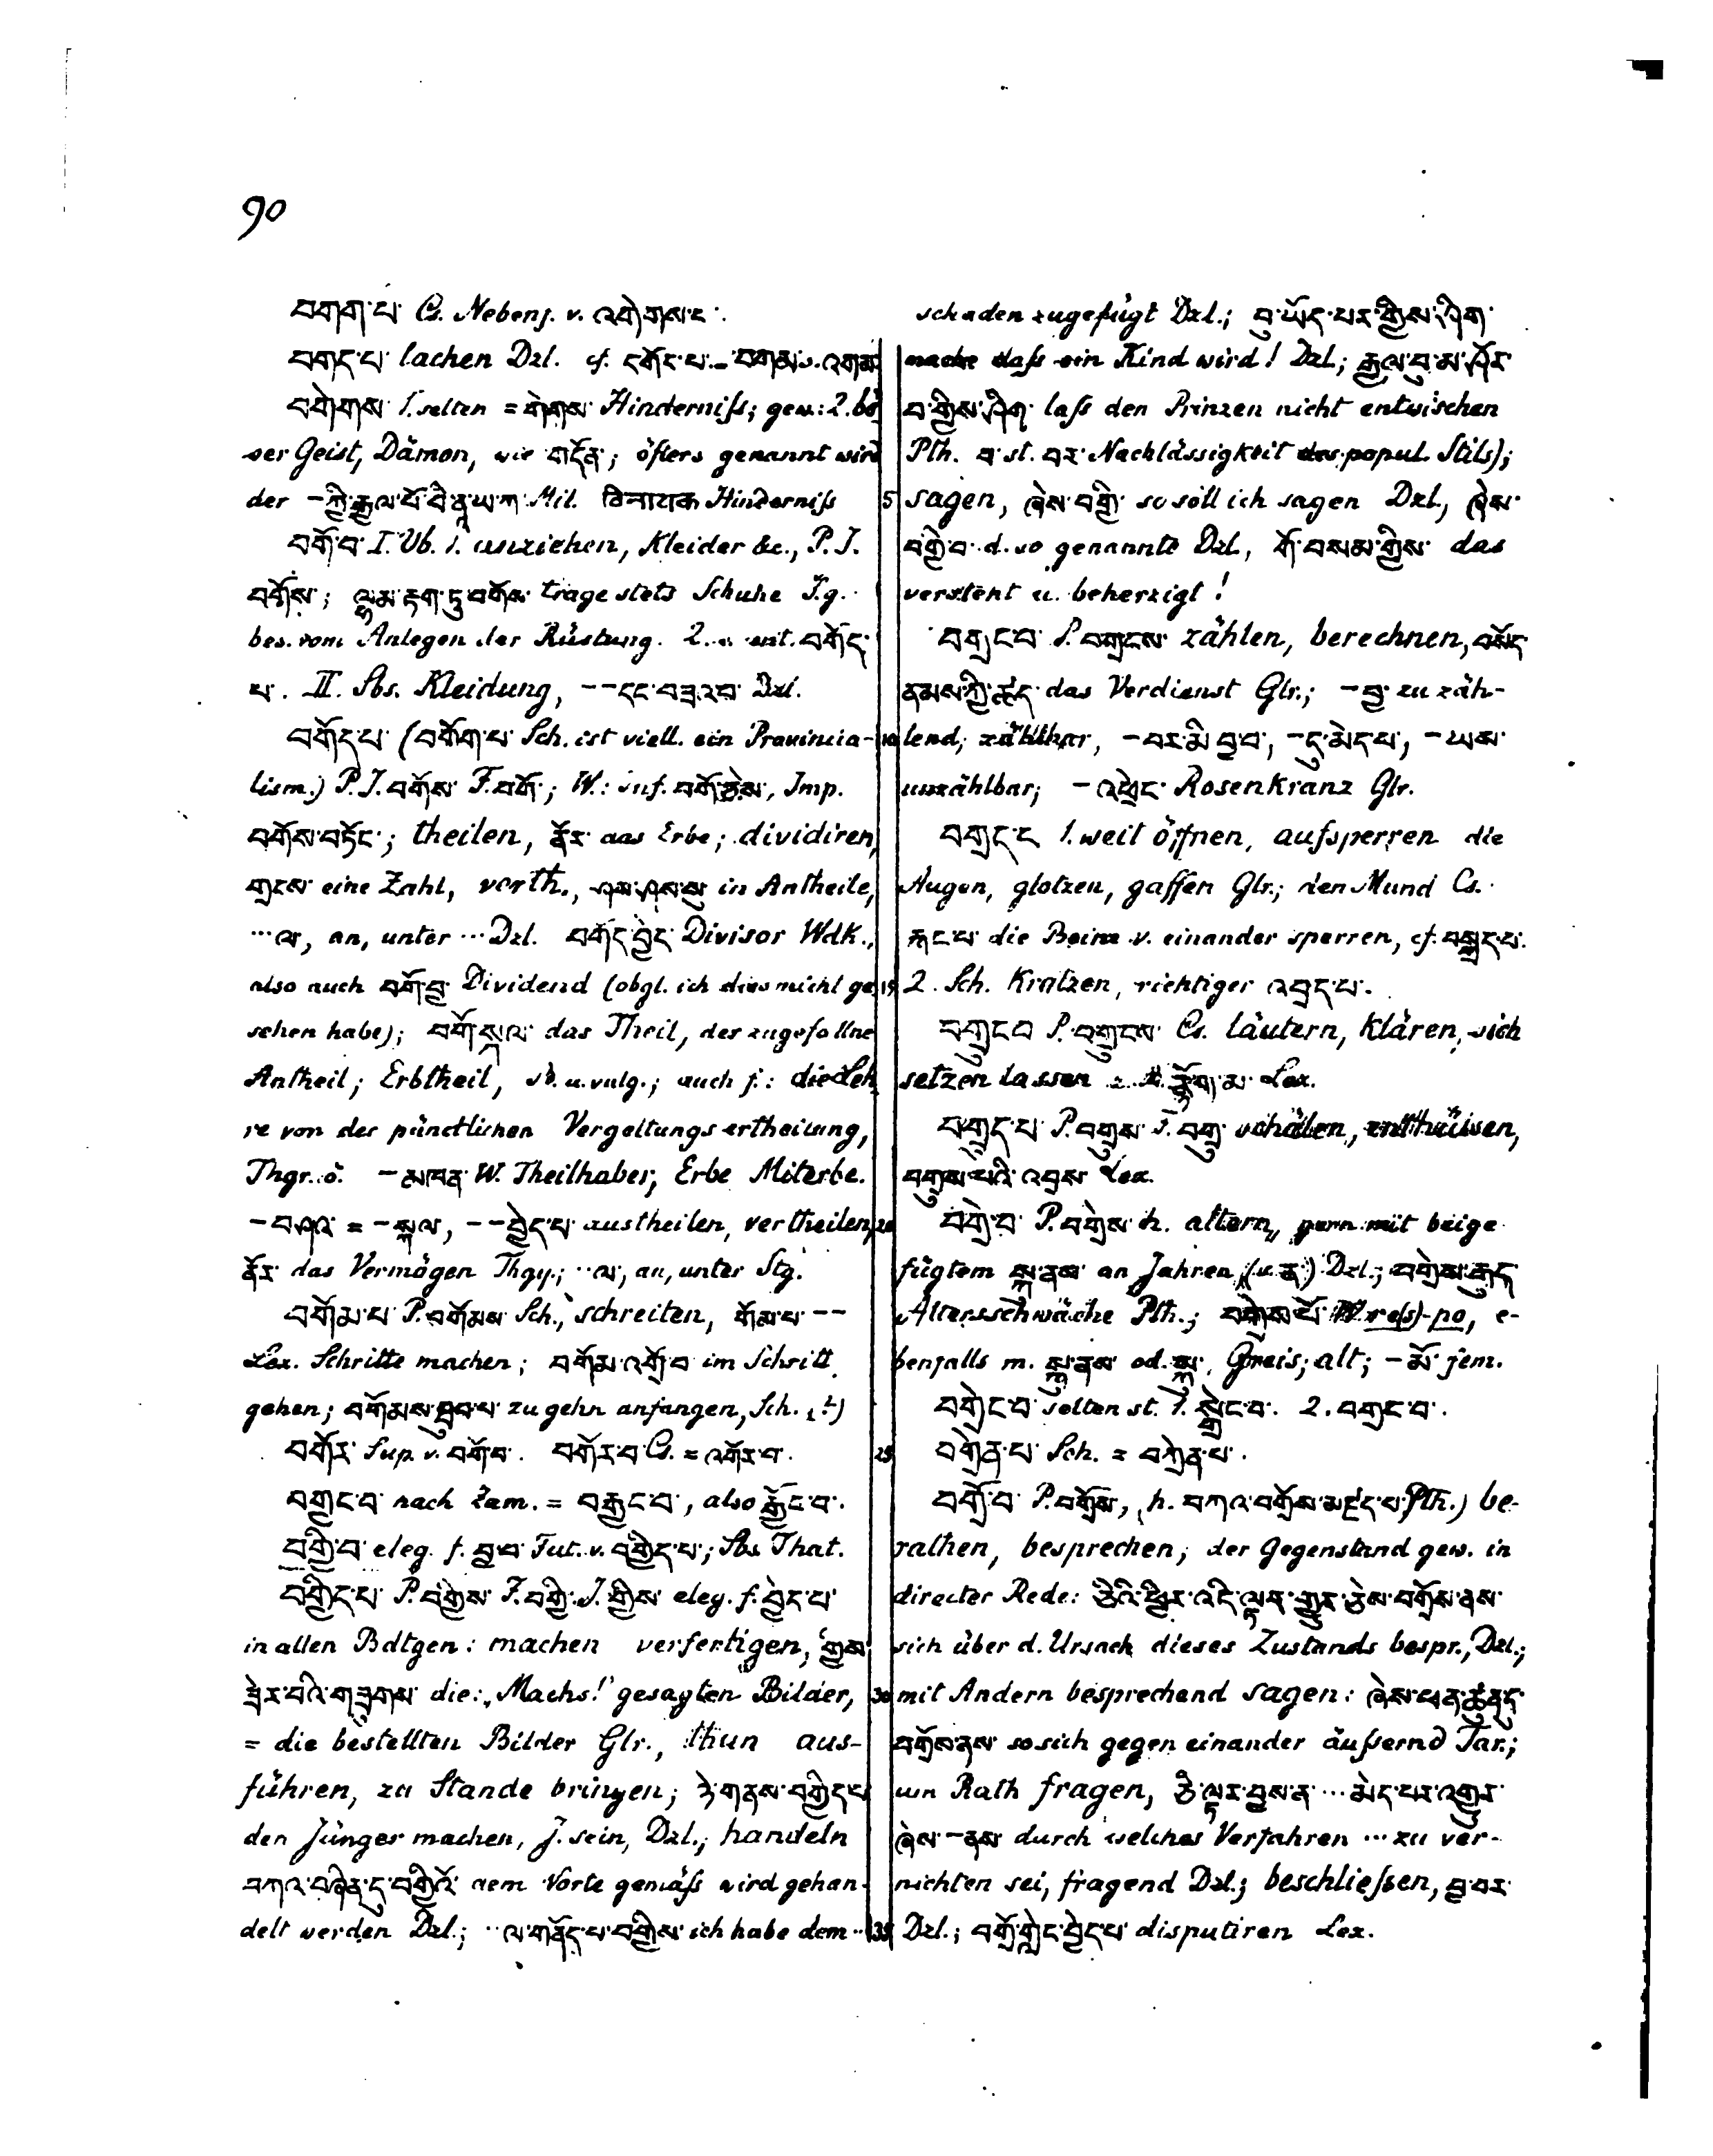 90
བགག་པ་ Cs. Nebenf. v. འགེགས་པ་.
བགད་པ་ lachen Dzl. cf. དགོད་པ་.
བགེགས 1. selten = གེགས་ Hinderniſs; gew.: 2. bö
ser Geist, Dämon, wie གདོན་; öfters genannt wird
der -ཀྱི་རྒྱལ་པོ་བི་ནཱ་ཡ་ཀ་ Mil. विनायक Hinderniſs
བགོ་བ་ I. Vb. 1. anziehen, Kleider &c., P. J.
བགོས་; ལྷམ་རྟག་ཏུ་བགོས་ trage stets Schuhe J.g.
bes. vom Anlegen der Rüstung. 2. བགོད་
པ་. II. Sbs. Kleidung, --དང་བཟའ་བ་ Dzl.
བགོད་པ་ (བགོག་པ་ Sch. ist viell. ein Provincia-
lism.) P. J. བགོས་ F. བགོ་; W.: inf. བགོ་ཅེས་, Imp.
བགོས་བཏོང་; theilen, ནོར་ das Erbe; dividiren,
གྲངས་ eine Zahl, verth., in Antheile,
...ལ་, an, unter ... Dzl. བགོད་བྱེད་ Divisor Wdk.,
also auch བགོ་བྱ་ Dividend (obgl. ich dies nicht ge
sehen habe); བགོ་སྐལ་ das Theil, der zugefallne
Antheil; Erbtheil, u. vulg.; auch f.: die Leh
re von der pünctlichen Vergeltungsertheilung,
Thgr. ö. -མཁན་ W. Theilhaber, Erbe Miterbe.
-བཤའ་ = -སྐལ་, --བྱེད་པ་ austheilen, vertheilen,
ནོར་ das Vermögen Thgy.; ..ལ་, an, unter Stg.
བགོམ་པ་ P. བགོམས་ Sch., schreiten, གོམ་པ་ --
Lex. Schritte machen; བགོམ་འགྲོ་བ་ im Schritt
gehen; བགོམས་ཐུབ་པ་ zu gehn anfangen, Sch. (?)
བགོར་ Sup. v. བགོ་བ་. བགོར་བ་ Cs. = འགོར་བ་.
བགྱང་བ་ nach Zam. = བརྒྱང་བ་, also རྒྱོང་བ་.
བགྱི་བ་ eleg. f. བྱ་བ་ Fut. v. བགྱིད་པ་; Sbs. That.
བགྱིད་པ་ P. བགྱིས་ F. བགྱི་ J. གྱིས་ eleg. f. བྱེད་པ་
in allen Bdtgen: machen verfertigen, གྱིས་
ཟེར་བའི་གཟུགས་ die: „Machs!“ gesagten Bilder,
= die bestellten Bilder Glr., thun aus-
führen, zu Stande bringen; ཉེ་གནས་བགྱིད་པ་
den Jünger machen, J. sein, Dzl.; handeln
བཀའ་བཞིན་དུ་བགྱིའོ་ dem Worte gemäſs wird gehan-
delt werden Dzl.; ..ལ་གནོད་པ་བགྱིས་ ich habe dem ..
schaden zugefügt Dzl.; བུ་ཡོད་པར་གྱིས་ཤིག་
mache daſs ein Kind wird! Dzl.; རྒྱལ་བུ་མ་ཤོར་
བ་གྱིས་ཤིག་ laſs den Prinzen nicht entwischen
Pth. བ་ st. བར་ Nachlässigkeit des popul. Stils);
5 sagen, ཞེས་བགྱི་ so soll ich sagen Dzl., ཞེས་
བགྱི་བ་ d. so genannte Dzl., གོ་བསམ་གྱིས་ das
versteht u. beherzigt!
བགྲང་བ་ P. བགྲངས་ zählen, berechnen, བསོད་
ནམས་ཀྱི་ཚད་ das Verdienst Glr.; -བྱ་ zu zäh-
10 lend, zählbar, -བར་མི་བྱ་བ་, -དུ་མེད་པ་, -ཡས་
unzählbar; -འཕྲེང་ Rosenkranz Glr.
བགྲད་པ་ 1. weit öffnen, aufsperren die
Augen, glotzen, gaffen Glr.; den Mund Cs.
རྐང་པ་ die Beine v. einander sperren, cf. བསྒྲད་པ་.
15 2. Sch. Kratzen, richtiger འབྲད་པ་.
བགྲུང་བ་ P. བགྲུངས་ Cs. läutern, Klären, sich
setzen lassen རྙོག་མ་ Lex.
བགྲུད་པ་ P. བགྲུས་ F. བགྲུ་ schälen, enthülsen,
བགྲུས་པའི་འབྲས་ Lex.
20 བགྲེ་བ་ P. བགྲེས་ h. altern, gern mit beige
fügtem སྐུ་ནས་ an Jahren, (u. ན་) Dzl.; བགྲེས་རྒུད་
Altersschwäche Pth.; བགྲེས་པོ་ W. re(s)-po, e-
benfalls m. སྐུ་ནས་ od. སྐུ་, Greis; alt; -མོ་ fem.
བགྲེང་བ་ selten st. 1. སྒྲེང་བ་. 2. བགྲང་བ་.
25 བགྲེན་པ་ Sch. = བཀྲེན་པ་.
བགྲོ་བ་ P. བགྲོས་, (h. བཀའ་བགྲོས་མཛད་པ་ Pth.) be-
rathen, besprechen; der Gegenstand gew. in
directer Rede: ཅིའི་ཕྱིར་འདི་ལྟར་གྱུར་ཅེས་བགྲོས་ནས་
sich über d. Ursach dieses Zustands bespr., Dzl.;
30 mit Andern besprechend sagen: ཞེས་ཕན་ཚུན་དུ་
བགྲོས་ནས་ so sich gegen einander äuſsernd Tar.;
um Rath fragen, ཅི་ལྟར་བྱས་ན་ ... མེད་པར་འགྱུར་
ཞེས་-ནས་ durch welches Verfahren ... zu ver-
nichten sei, fragend Dzl.; beschlieſsen, བྱ་བར་
35 Dzl.; བགྲོ་གླེང་བྱེད་པ་ disputiren Lex.